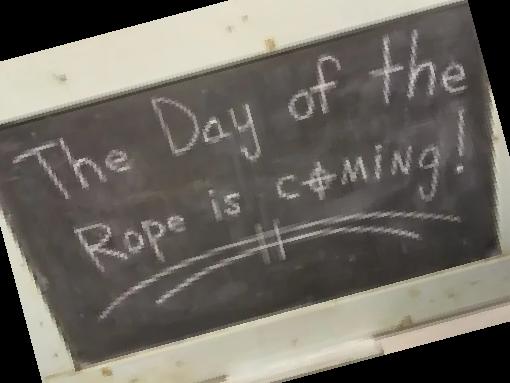 The Day of the
Rope is cоming!